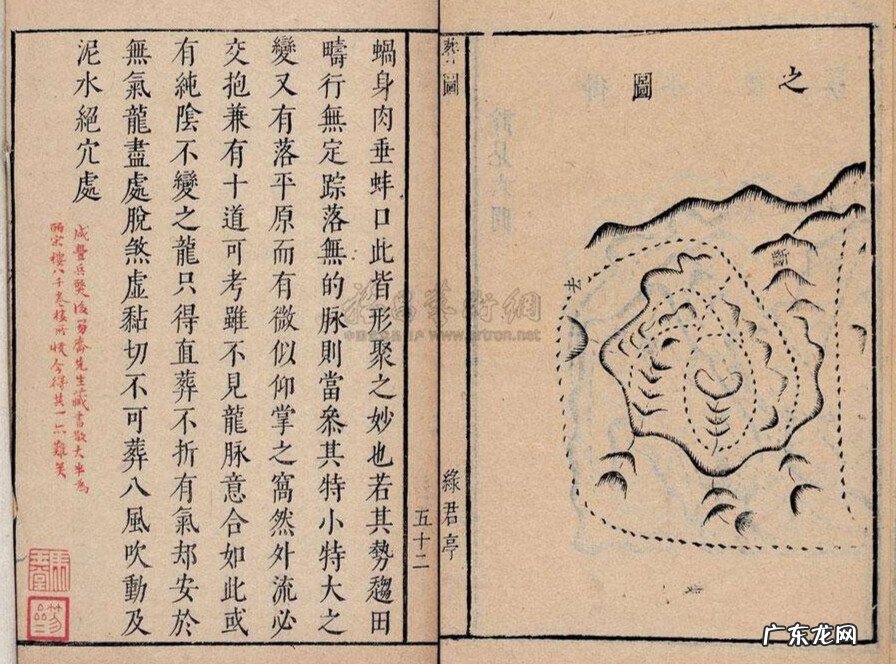 之
圖
去
圖
綠君亭
五十二
蝸身肉垂蚌口此皆形聚之妙也若其勢趨田
疇行無定踪落無的脉則當叅其特小特大之
變又有落平原而有微似仰掌之窩然外流必
交抱兼有十道可考雖不見龍脉意合如此或
有純陰不變之龍只得直葬不折有氣却安於
無氣龍盡處脫煞虛黏切不可葬八風吹動及
泥水絕穴處
咸豐兵燹後齋先生藏書散大半為
皕宋樓八千卷樓所收今得其一亦難矣
雅昌藝術網
www.artron.net
广东龙网